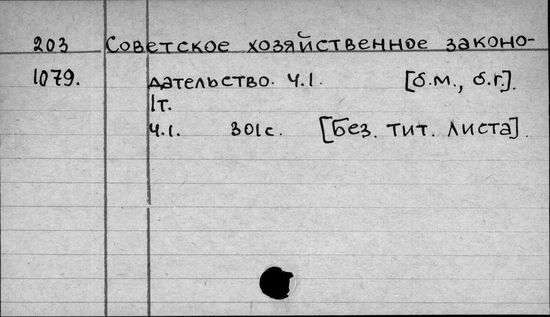 203 Советское хозяйственное законо-
1079. дательство. Ч.1. [б.м., б.г.].
1т.
Ч.1. 301с. [Без. тит. листа].